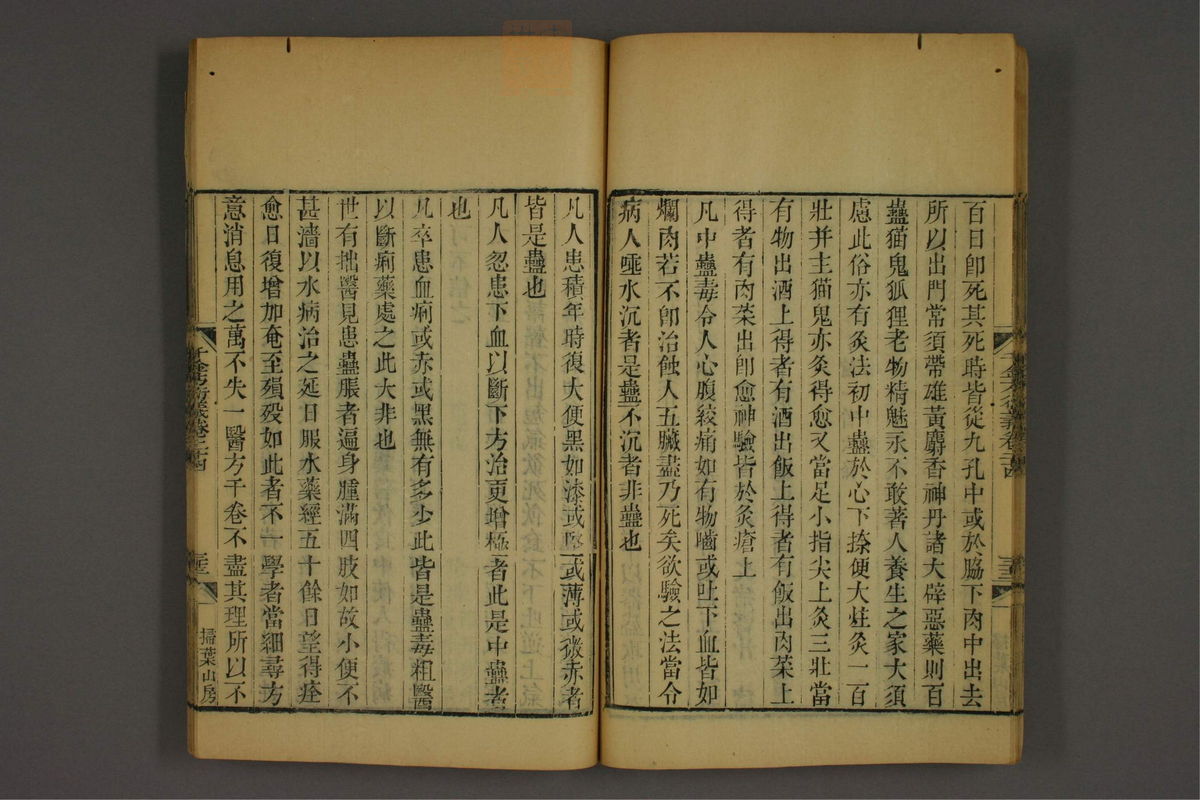 百日卽死其死時皆從九孔中或於脇下肉中出去
所以出門常須帶雄黃麝香神丹諸大辟惡藥則百
蠱猫鬼狐狸老物精魅永不敢著人養生之家大須
慮此俗亦有灸法初中蠱於心下捺便大炷灸一百
壯并主猫鬼亦灸得愈又當足小指尖上灸三壯當
有物出酒上得者有酒出飯上得者有飯出肉菜上
得者有肉菜出卽愈神驗皆於灸瘡上
凡中蠱毒令人心腹絞痛如有物嚙或吐下血皆如
爛肉若不卽治蝕人五臟盡乃死矣欲驗之法當令
病人唾水沉者是蠱不沉者非蠱也
凡人患積年時復大便黑如漆或堅或薄或微赤者
皆是蠱也
凡人忽患下血以斷下方治更增極者此是中蠱者
也
凡卒患血痢或赤或黑無有多少此皆是蠱毒粗醫
以斷痢藥處之此大非也
世有拙醫見患蠱脹者遍身腫滿四肢如故小便不
甚濇以水病治之延日服水藥經五十餘日望得痊
愈日復增加奄至殞歿如此者不一學者當細尋方
意消息用之萬不失一醫方千卷不盡其理所以不
千金方衍義卷二十四
三十三
掃葉山房